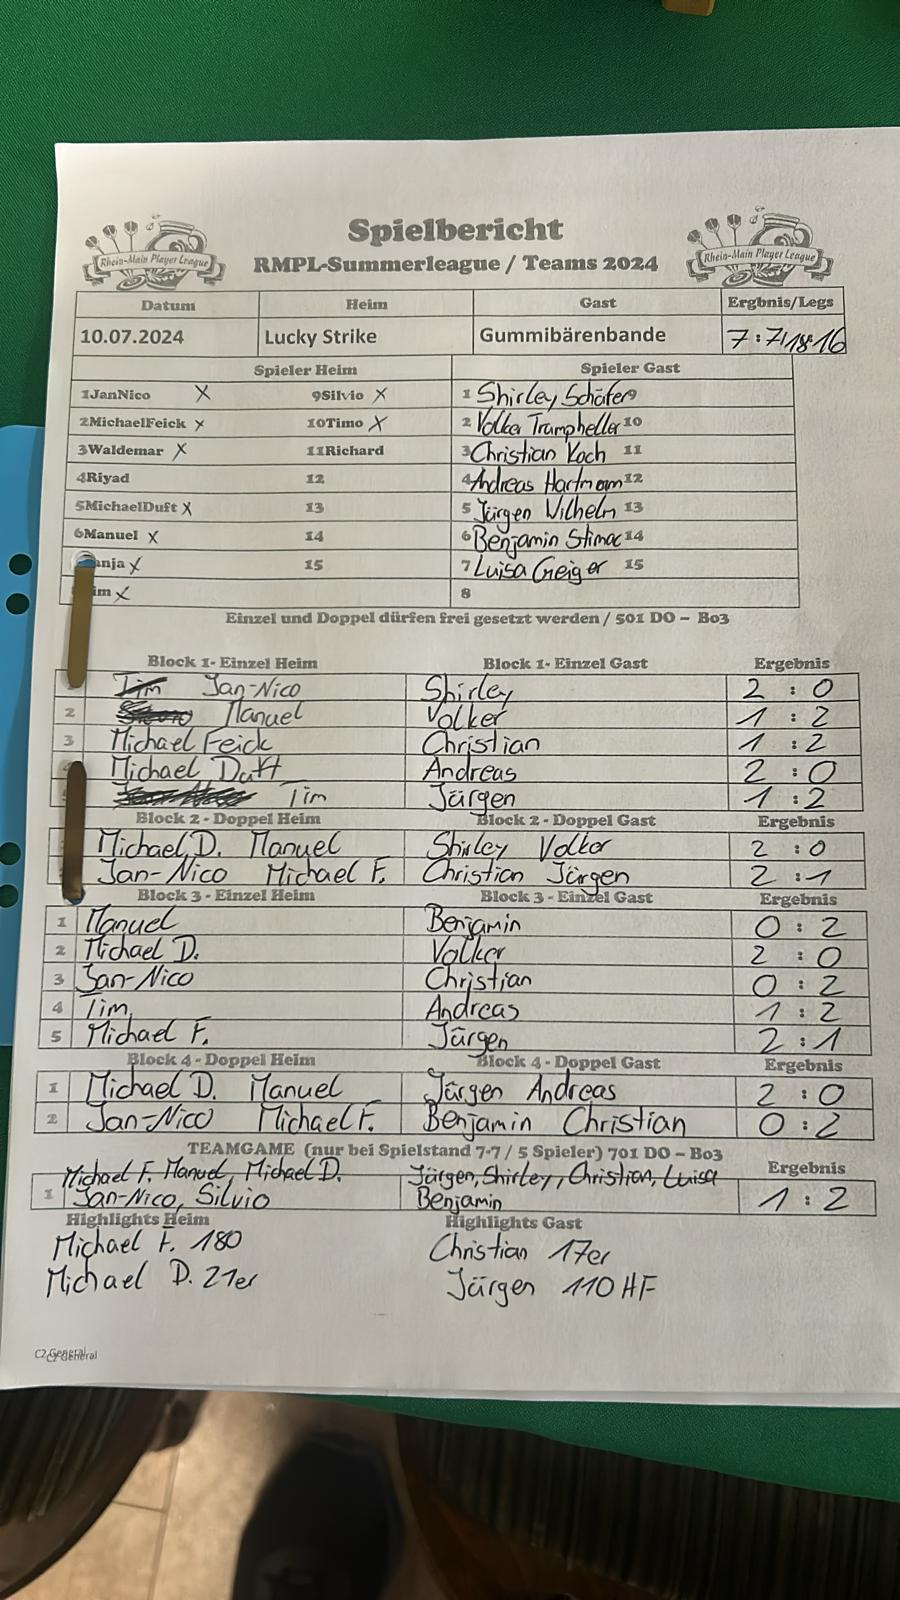 Spielbericht
RMPL-Summerleague / Teams 2024
Rhein-Main Player League
Rhein-Main Player League
Datum Heim Gast Ergbnis/Legs
10.07.2024 Lucky Strike Gummibärenbande 7:7/18:16
Spieler Heim Spieler Gast
1JanNico X 9Silvio X 1 Shirley Schäfer 9
2MichaelFeick X 10Timo X 2 Volker Trampheller 10
3Waldemar X 11Richard 3 Christian Koch 11
4Riyad 12 4 Andreas Hartmann 12
5MichaelDuft X 13 5 Jürgen Wilhelm 13
6Manuel X 14 6 Benjamin Stimac 14
anja X 15 7 Luisa Geiger 15
im X 8
Einzel und Doppel dürfen frei gesetzt werden / 501 DO – Bo3
Block 1- Einzel Heim Block 1- Einzel Gast Ergebnis
Tim Jan-Nico Shirley 2 : 0
2 Manuel Volker 1 : 2
3 Michael Feick Christian 1 : 2
Michael Duft Andreas 2 : 0
Tim Jürgen 1 : 2
Block 2 - Doppel Heim Block 2 - Doppel Gast Ergebnis
Michael D. Manuel Shirley Volker 2 : 0
Jan-Nico Michael F. Christian Jürgen 2 : 1
Block 3 - Einzel Heim Block 3 - Einzel Gast Ergebnis
1 Manuel Benjamin 0 : 2
2 Michael D. Volker 2 : 0
3 Jan-Nico Christian 0 : 2
4 Tim Andreas 1 : 2
5 Michael F. Jürgen 2 : 1
Block 4 - Doppel Heim Block 4 - Doppel Gast Ergebnis
1 Michael D. Manuel Jürgen Andreas 2 : 0
2 Jan-Nico Michael F. Benjamin Christian 0 : 2
TEAMGAME (nur bei Spielstand 7-7 / 5 Spieler) 701 DO – Bo3
Ergebnis
Michael F. Manuel, Michael D. Jürgen, Shirley, Christian, Luisa
1 Jan-Nico, Silvio Benjamin 1 : 2
Highlights Heim Highlights Gast
Michael F. 180 Christian 17er
Michael D. 21er Jürgen 110 HF
C2 General